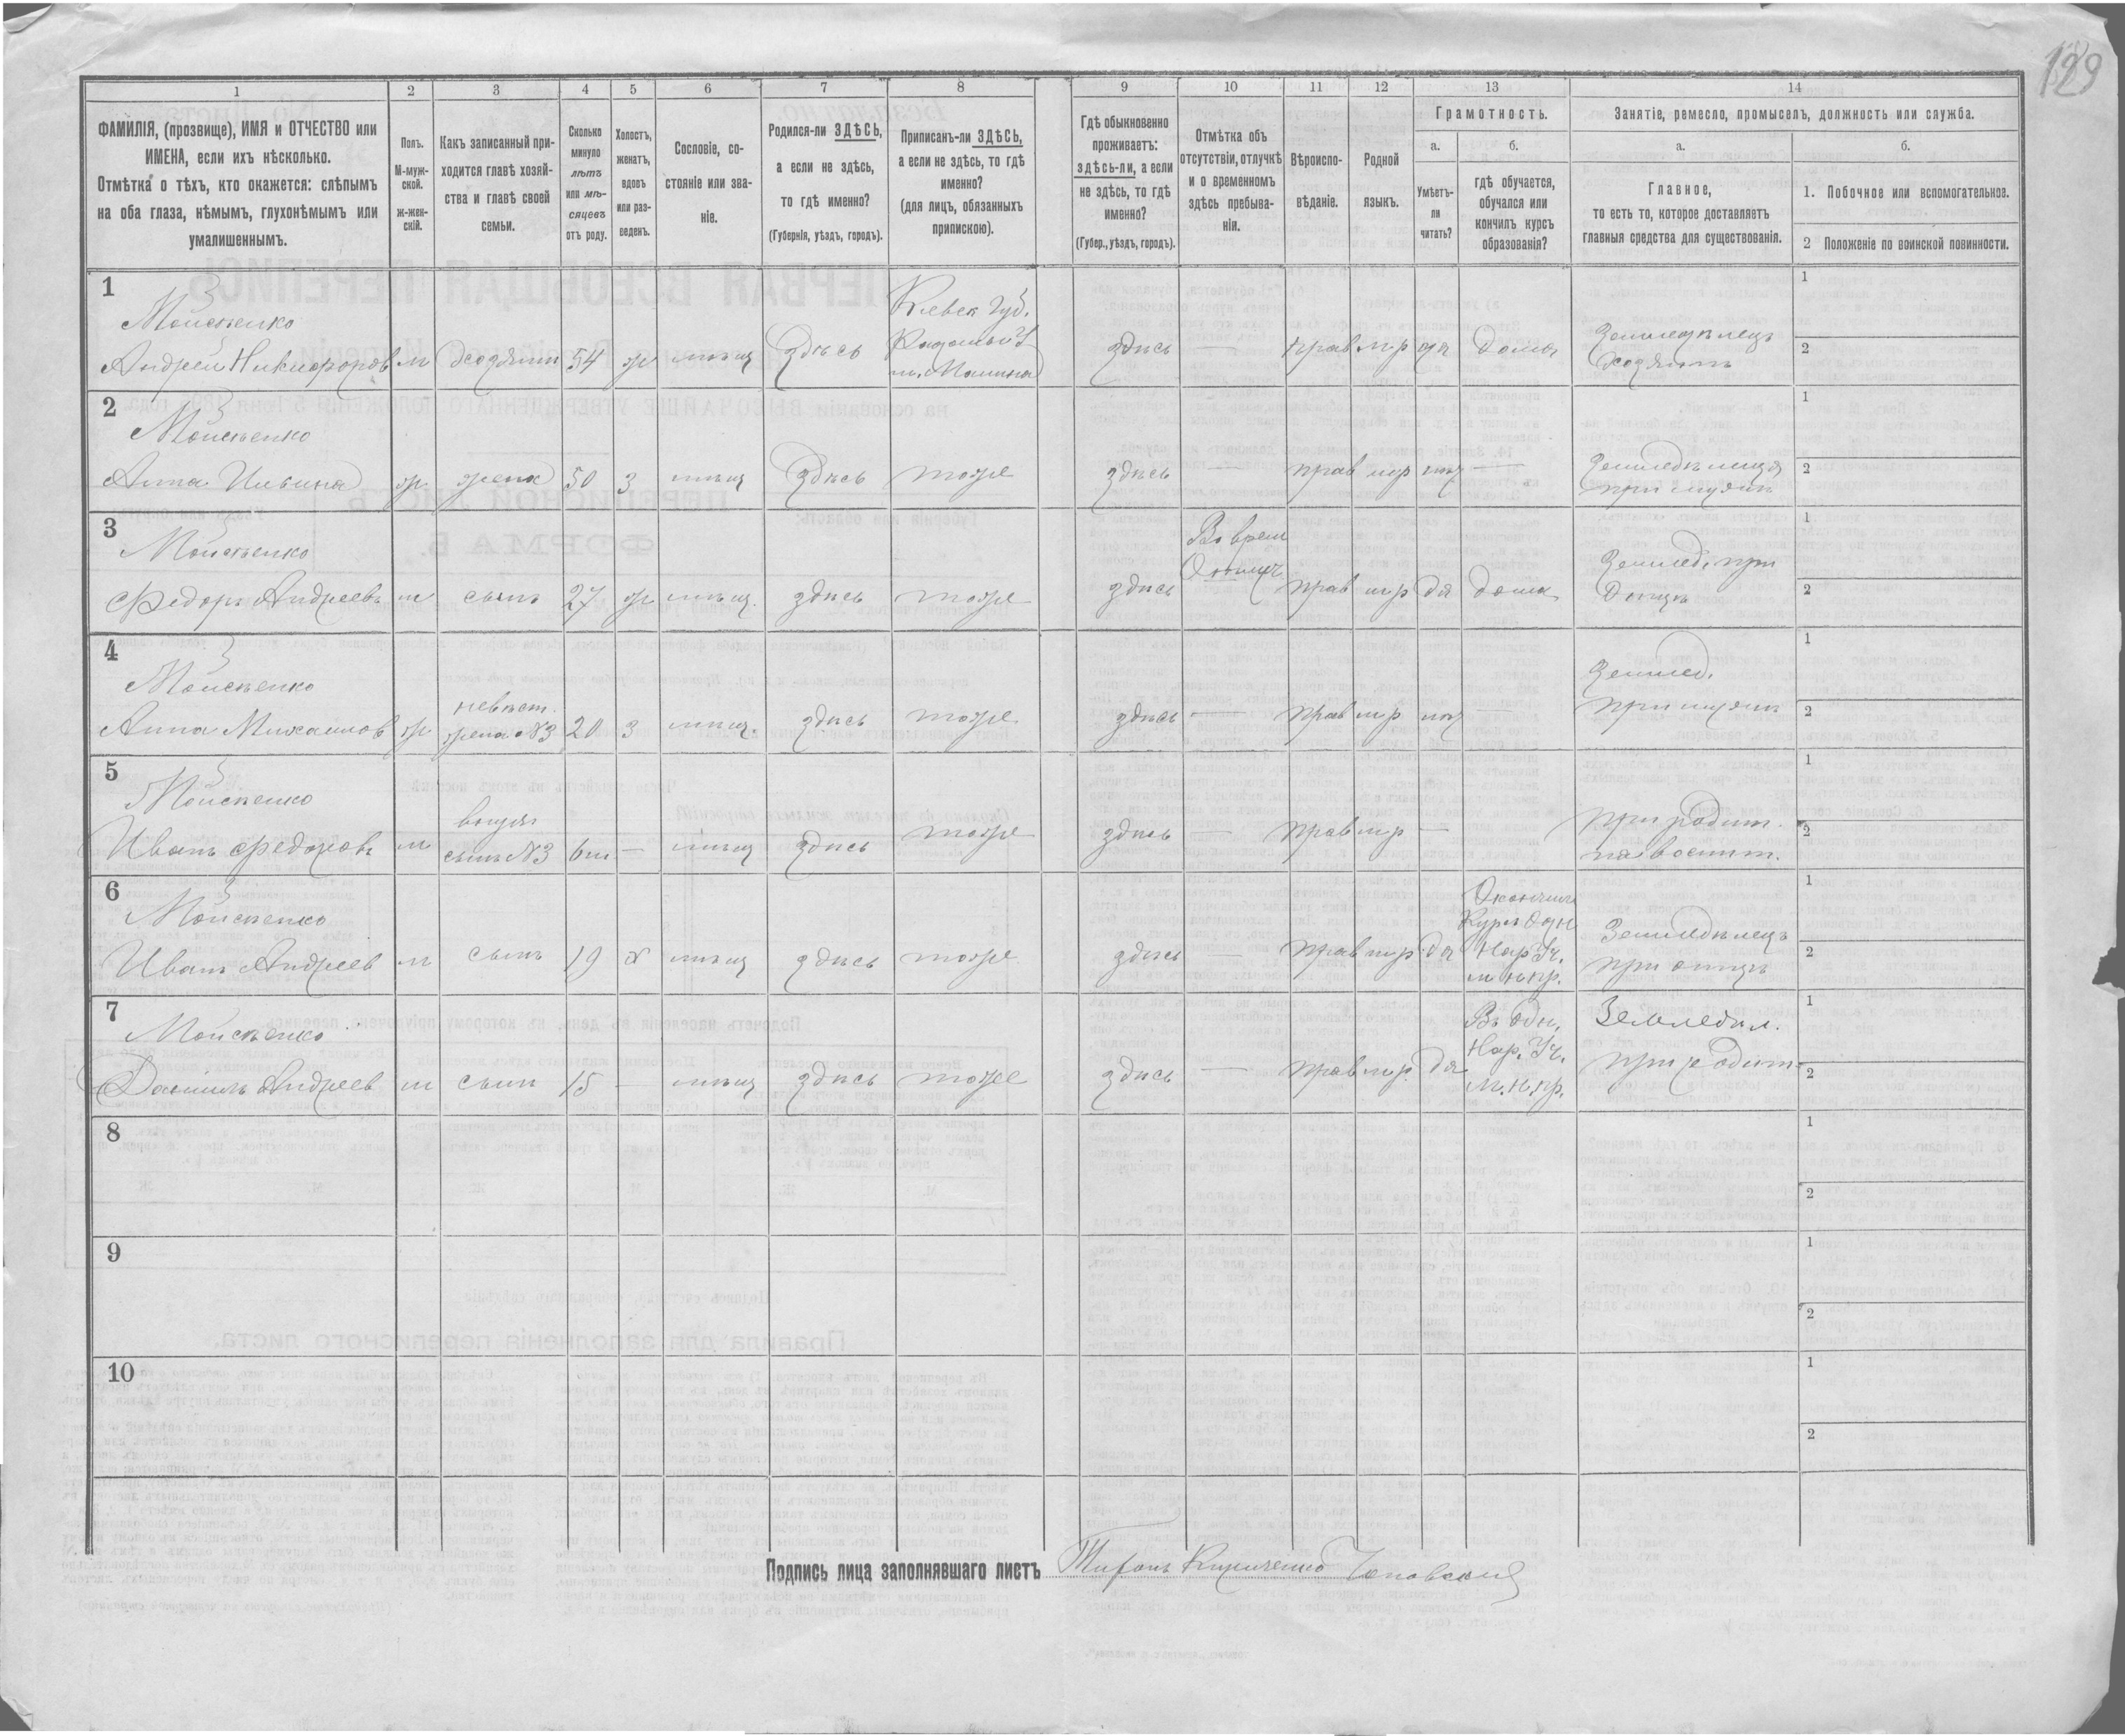 189
1 2 3 4 5 6 7 8 9 10 11 12 13 14
ФАМИЛІЯ, (прозвище), ИМЯ и ОТЧЕСТВО или
ИМЕНА, если ихъ нѣсколько.
Отмѣтка о тѣхъ, кто окажется: слѣпымъ
на оба глаза, нѣмымъ, глухонѣмымъ или
умалишеннымъ.
Полъ.
М-муж-
ской.
ж-жен-
скій.
Какъ записанный при-
ходится главѣ хозяй-
ства и главѣ своей
семьи.
Сколько
минуло
лѣтъ
или мѣ-
сяцевъ
отъ роду.
Холостъ,
женатъ,
вдовъ
или раз-
веденъ.
Сословіе, со-
стояніе или зва-
ніе.
Родился-ли ЗДѢСЬ,
а если не здѣсь,
то гдѣ именно?
(Губернія, уѣздъ, городъ).
Приписанъ-ли ЗДѢСЬ,
а если не здѣсь, то гдѣ
именно?
(для лицъ, обязанныхъ
припискою).
Гдѣ обыкновенно
проживаетъ:
здѣсь-ли, а если
не здѣсь, то гдѣ
именно?
(Губер., уѣздъ, городъ).
Отмѣтка объ
отсутствіи, отлучкѣ
и о временномъ
здѣсь пребыва-
ніи.
Вѣроиспо-
вѣданіе.
Родной
языкъ.
Грамотность.
а.
Умѣетъ-
ли
читать?
б.
гдѣ обучается,
обучался или
кончилъ курсъ
образованія?
Занятіе, ремесло, промыселъ, должность или служба.
а.
Главное,
то есть то, которое доставляетъ
главныя средства для существованія.
б.
1. Побочное или вспомогательное.
2 Положеніе по воинской повинности.
1
Мойсѣенко
Андрей Никифоров м хозяинъ 54 ж мѣщ Здѣсь
Кіевск Губ.
м. Малина
здѣсь — прав мр да дома
Земледѣлецъ
Хозяинъ
1
2
2
Мойсѣенко
Анна Ильина ж. жена 50 з мѣщ Здѣсь тоже здѣсь — прав мр нѣт —
Земледѣлица
при мужѣ
1
2
3
Мойсѣенко
Федоръ Андреевъ м сынъ 27 ж мѣщ. здѣсь тоже здѣсь
Во врем
Отлуч
прав мр да дома
Земледѣ. при
Отцѣ
1
2
4
Мойсѣенко
Анна Михайлов ж
невѣст.
жена №3 20 з мѣщ. здѣсь тоже здѣсь — прав мр нѣт —
Земледѣ.
при мужѣ
1
2
5
Мойсѣенко
Иванъ Федоровъ м
внукъ
сынъ №3 6м — мѣщ здѣсь тоже здѣсь — прав мр —
при родит.
на воспит.
1
2
6
Мойсѣенко
Иванъ Андреев м сынъ 19 х мѣщ здѣсь тоже здѣсь — прав мр да
Окончил
Курсъ Одн
Нар. Уч.
м н пр.
Земледѣлецъ
при отцѣ
1
2
7
Мойсѣенко
Даніилъ Андреев м сын 15 - мѣщ здѣсь тоже здѣсь — прав мр. да
Въ Одн.
Нар. Уч.
М. н. пр.
Земледѣл.
при родит-
1
2
8
1
2
9
1
2
10
1
2
Подпись лица заполнявшаго листъ Кириченко